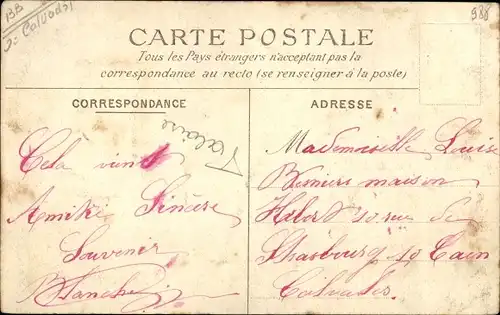 BB
Calvados
988
CARTE POSTALE
Tous les Pays étrangers n'acceptent pas la
correspondance au recto (se renseigner à la poste)
CORRESPONDANCE
ADRESSE
Amitié Sincère
Souvenir
Blanche
Mademoiselle Louise
maison
10 rue de
Strasbourg 10 Caen
Calvados